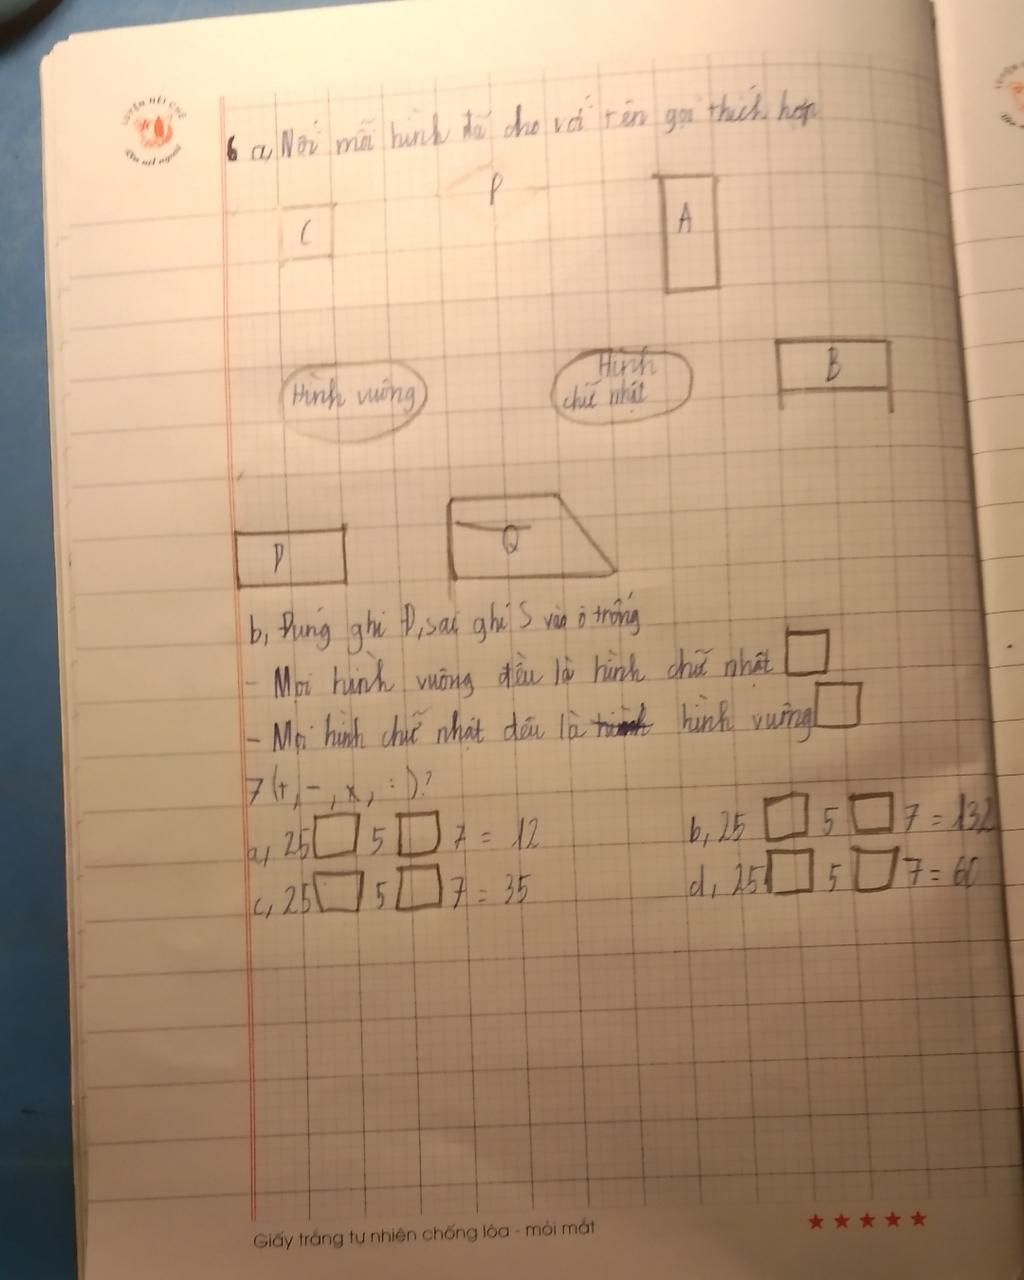 LUYỆN NÉT CHỮ
rèn nết người
6 a, Nối mỗi hình đã cho với tên gọi thích hợp
P
C
A
Hình vuông
Hình
chữ nhật
B
D
Q
b, Đúng ghi Đ, sai ghi S vào ô trống
- Mọi hình vuông đều là hình chữ nhật
- Mọi hình chữ nhật đều là hình hình vuông
7 (+, -, x, :)?
a, 25 5 7 = 12
b, 25 5 7 = 132
c, 25 5 7 = 35
d, 25 5 7 = 60
Giấy trắng tự nhiên chống lóa - mỏi mắt